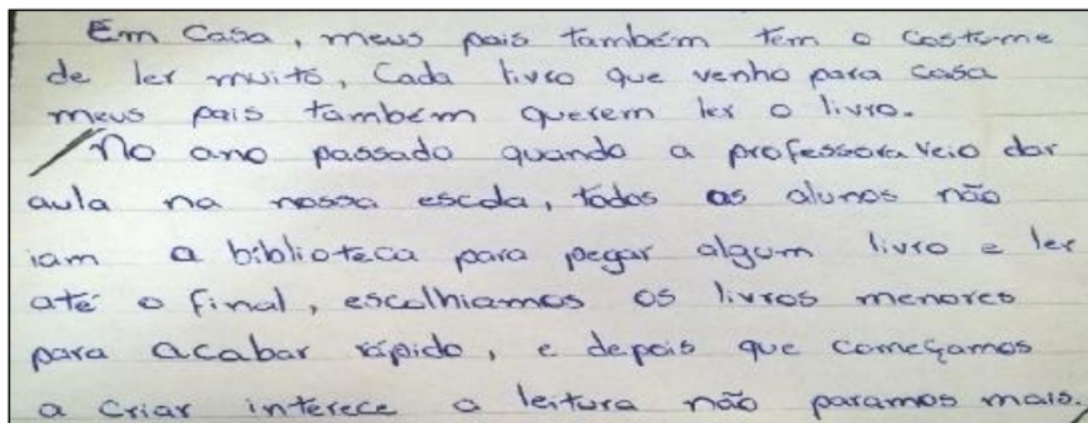 Em Casa, meus pais também tem o costume
de ler muito, Cada livro que venho para casa
meus pais também querem ler o livro.
No ano passado quando a professora veio dar
aula na nossa escola, todos os alunos não
iam a biblioteca para pegar algum livro e ler
até o final, escolhiamos os livros menores
para acabar rápido, e depois que começamos
a criar interece a leitura não paramos mais.